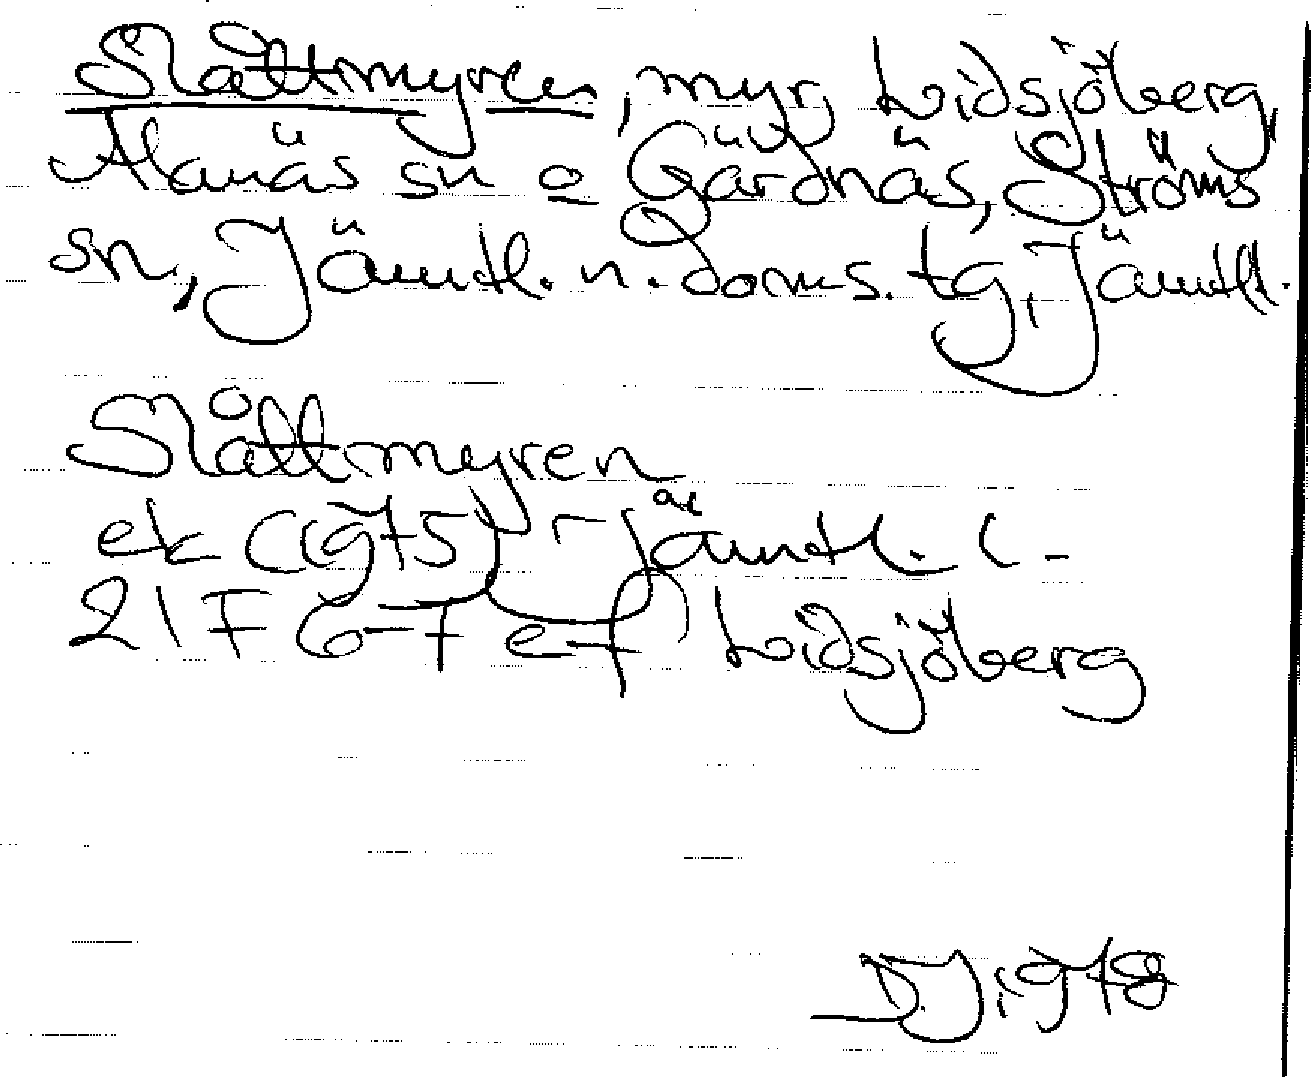 Slåttmyren, myr, Lidsjöberg,
Alanäs sn o Gärdnäs, Ströms
sn, Jämtl. n. doms. tg, Jämtl.
Slåttmyren
ek (1975) - Jämtl. l -
21F 6-7 e-f Lidsjöberg
1978